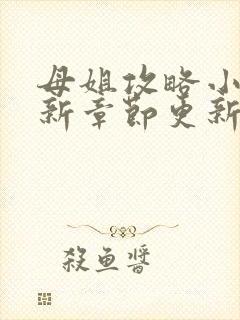 母姐攻略小
新章節更新
殺魚醬